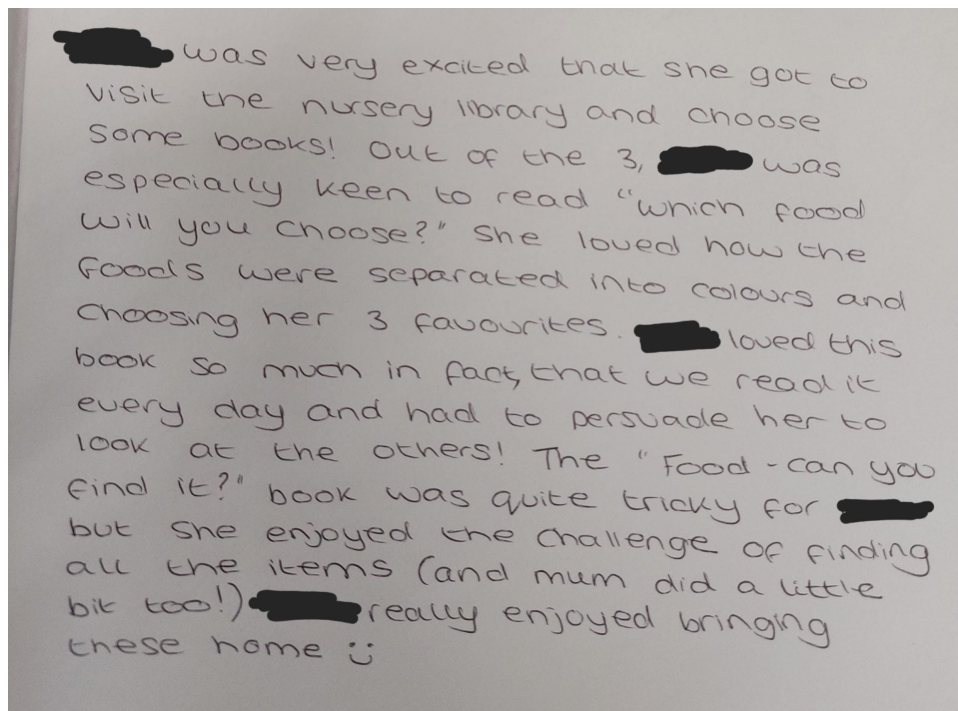 was very excited that she got to
visit the nursery library and choose
some books! Out of the 3, was
especially keen to read "which food
will you choose?" She loved how the
foods were separated into colours and
choosing her 3 favourites. loved this
book so much in fact, that we read it
every day and had to persuade her to
look at the others! The "Food - can you
find it?" book was quite tricky for
but she enjoyed the challenge of finding
all the items (and mum did a little
bit too!) really enjoyed bringing
these home :)